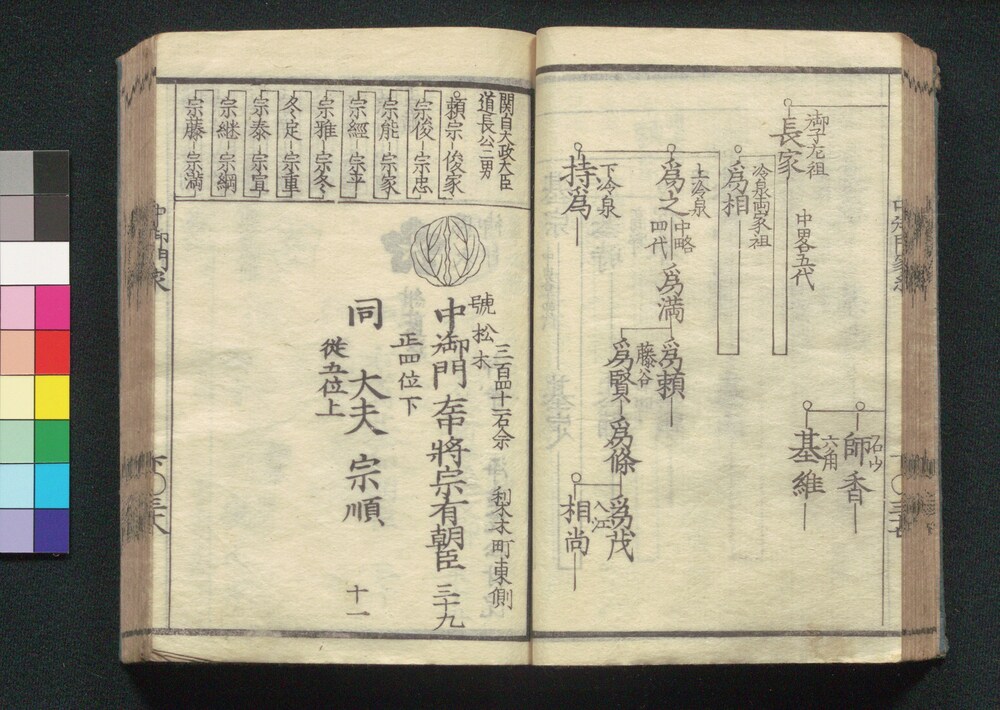 御子左祖
長家
中畧五代
冷泉両家祖
爲相
上冷泉
爲之
中略
四代
爲満
爲頼
藤谷
爲賢
爲條
爲茂
入江
相尚
下冷泉
持爲
師香
六角
基維
関白太政大臣
道長公二男
頼宗 俊家
宗俊 宗忠
宗能 宗家
宗經 宗平
宗雅 宗冬
冬定 宗重
宗泰 宗宣
宗継 宗綱
宗藤 宗満
號松木
三百四十一石余
町東側
中御門 中將宗有朝臣 三十九
正四位下
同 大夫 宗順 十一
從五位上